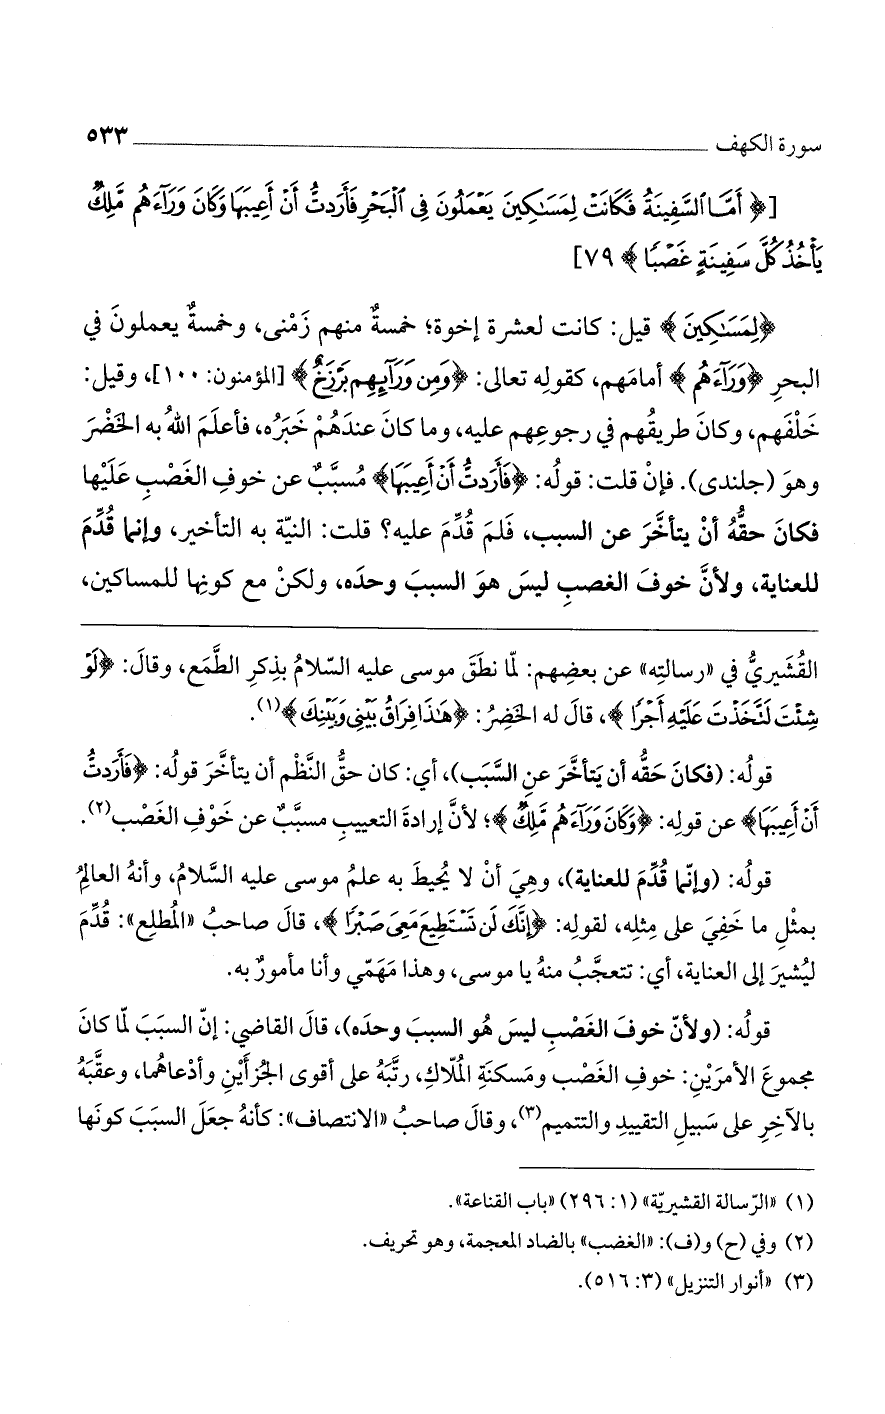 سورة الكهف ٥٣٣
[﴿ أَمَّا ٱلسَّفِينَةُ فَكَانَتْ لِمَسَٰكِينَ يَعْمَلُونَ فِى ٱلْبَحْرِ فَأَرَدتُّ أَنْ أَعِيبَهَا وَكَانَ وَرَآءَهُم مَّلِكٌ
يَأْخُذُ كُلَّ سَفِينَةٍ غَصْبًا ﴾ ٧٩]
﴿لِمَسَٰكِينَ ﴾ قيل: كانت لعشرة إخوة؛ خمسةٌ منهم زَمْنى، وخمسةٌ يعملونَ في
البحرِ ﴿وَرَآءَهُم ﴾ أمامَهم، كقولِه تعالى: ﴿وَمِن وَرَآئِهِم بَرْزَخٌ ﴾ [المؤمنون: ١٠٠]، وقيل:
خَلْفَهم، وكانَ طريقُهم في رجوعِهم عليه، وما كانَ عندَهُمْ خَبَرُه، فأعلَمَ اللهُ به الخَضْرَ
وهوَ (جلندى). فإنْ قلت: قولُه: ﴿فَأَرَدتُّ أَنْ أَعِيبَهَا﴾ مُسبَّبٌ عن خوفِ الغَصْبِ عَلَيْها
فكانَ حقُّهُ أنْ يتأخَّرَ عن السبب، فَلِمَ قُدِّمَ عليه؟ قلت: النيّة به التأخير، وإنما قُدِّمَ
للعناية، ولأنَّ خوفَ الغصبِ ليسَ هوَ السببَ وحدَه، ولكنْ مع كونِها للمساكين،
القُشَيريُّ في «رسالتِه» عن بعضِهم: لمّا نطَقَ موسى عليه السّلامُ بذِكرِ الطَّمَع، وقالَ: ﴿لَوْ
شِئْتَ لَتَّخَذْتَ عَلَيْهِ أَجْرًا ﴾، قالَ له الخَضِرُ: ﴿هَٰذَا فِرَاقُ بَيْنِى وَبَيْنِكَ ﴾(١).
قولُه: (فكانَ حَقَّه أن يَتأخَّرَ عنِ السَّبَب)، أي: كان حقُّ النَّظْم أن يتأخَّرَ قولُه: ﴿فَأَرَدتُّ
أَنْ أَعِيبَهَا﴾ عن قولِه: ﴿وَكَانَ وَرَآءَهُم مَّلِكٌ ﴾؛ لأنَّ إرادةَ التعييبِ مسبَّبٌ عن خَوْفِ الغَصْب(٢).
قولُه: (وإنّما قُدِّمَ للعناية)، وهِيَ أنْ لا يُحيطَ به علمُ موسى عليه السَّلامُ، وأنهُ العالِمُ
بمثْلِ ما خَفِيَ على مِثلِه، لقولِه: ﴿إِنَّكَ لَن تَسْتَطِيعَ مَعِىَ صَبْرًا ﴾، قالَ صاحبُ «المُطلِع»: قُدِّمَ
ليُشيرَ إلى العناية، أي: تتعجَّبُ منهُ يا موسى، وهذا مَهَمّي وأنا مأمورٌ به.
قولُه: (ولأنّ خوفَ الغَصْبِ ليسَ هُو السببَ وحدَه)، قالَ القاضي: إنّ السبَبَ لمّا كانَ
مجموعَ الأمرَيْنِ: خوفِ الغَصْب ومَسكنَةِ المُلّاكِ، رتَّبَهُ على أقوى الجُزأَيْنِ وأدْعاهُما، وعقَّبَهُ
بالآخِرِ على سَبيلِ التقييدِ والتتميم(٣)، وقالَ صاحبُ «الانتصاف»: كأنهُ جعَلَ السبَبَ كونَها
(١) «الرّسالة القشيريّة» (١: ٢٩٦) «باب القناعة».
(٢) وفي (ح) و(ف): «الغضب» بالضاد المعجمة، وهو تحريف.
(٣) «أنوار التنزيل» (٣: ٥١٦).